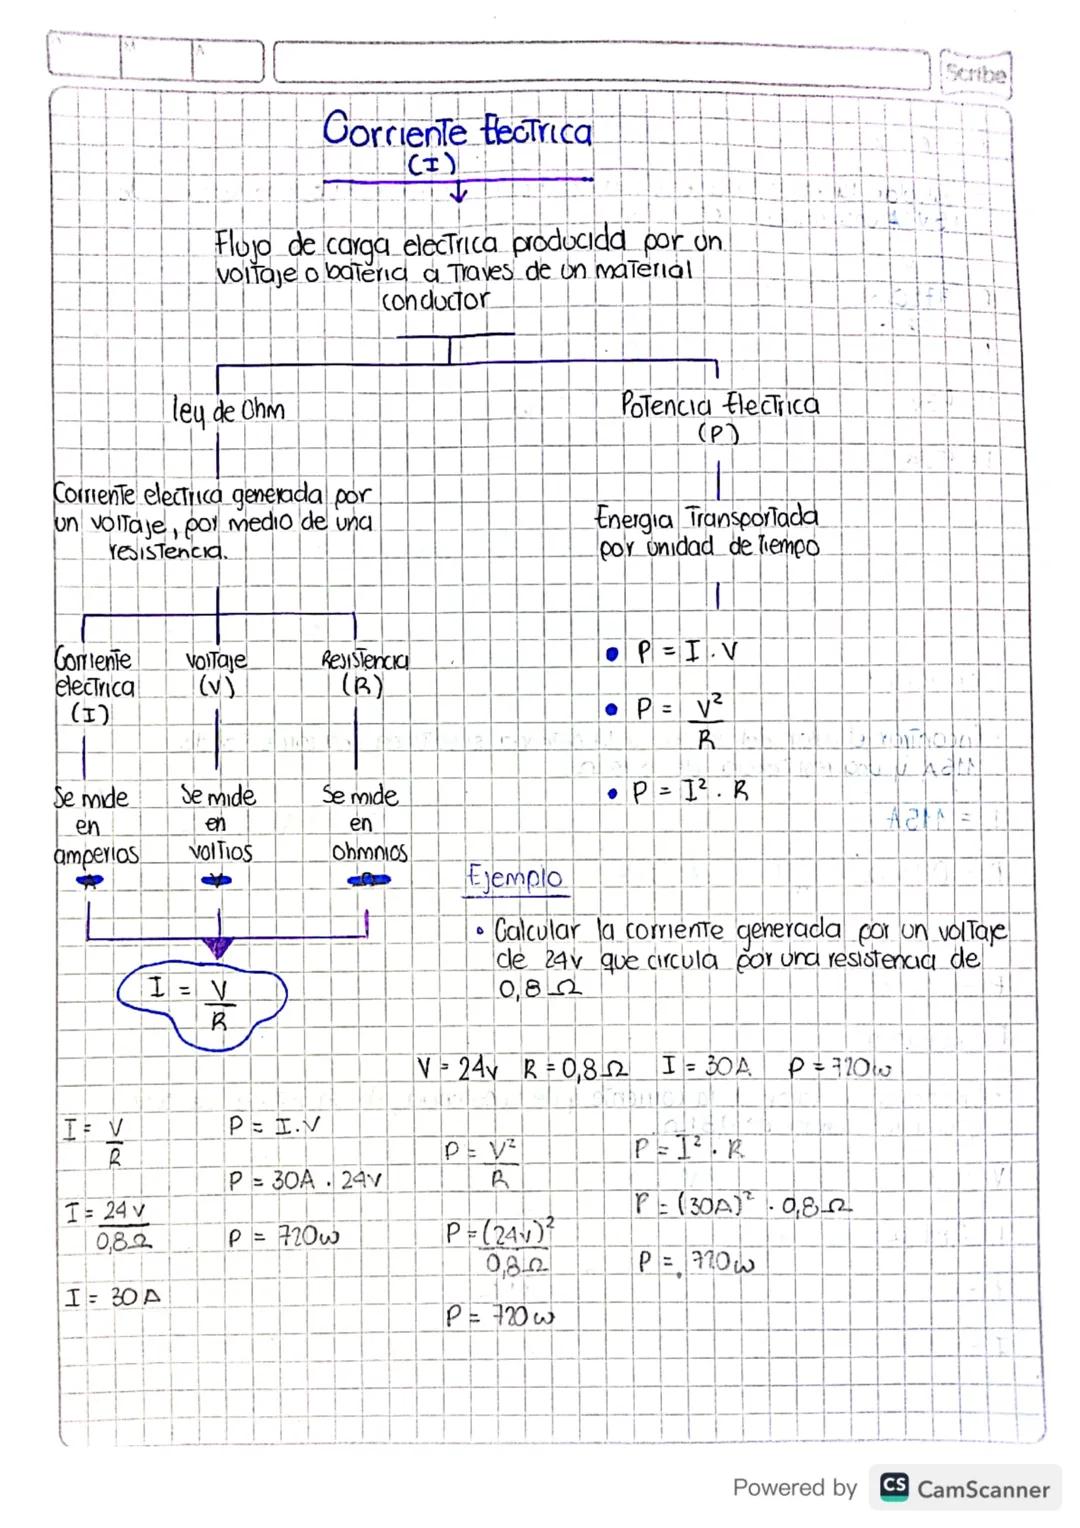 Scribe
Corriente Electrica
(I)
Flujo de carga electrica producida por un
voltaje o bateria a traves de un material
conductor
ley de Ohm
Corriente electrica generada por
un voltaje, por medio de una
resistencia.
Corriente
electrica
(I)
Voltaje
(V)
Resistencia
(R)
Se mide
en
amperios
A
Se mide
en
voltios
V
Se mide
en
ohmnios
Ω
I = V
R
Potencia Electrica
(P)
Energia Transportada
por unidad de tiempo
• P = I . V
• P = V²
R
• P = I² . R
Ejemplo
• Calcular la corriente generada por un voltaje
de 24v que circula por una resistencia de
0,8 Ω
V = 24v R = 0,8 Ω I = 30A P = 720w
I = V
R
I = 24 v
0,8 Ω
I = 30 A
P = I.V
P = 30A . 24v
P = 720w
P = V²
R
P = (24v)²
0,8 Ω
P = 720 w
P = I² . R
P = (30A)² . 0,8 Ω
P = 720w
Powered by CS CamScanner